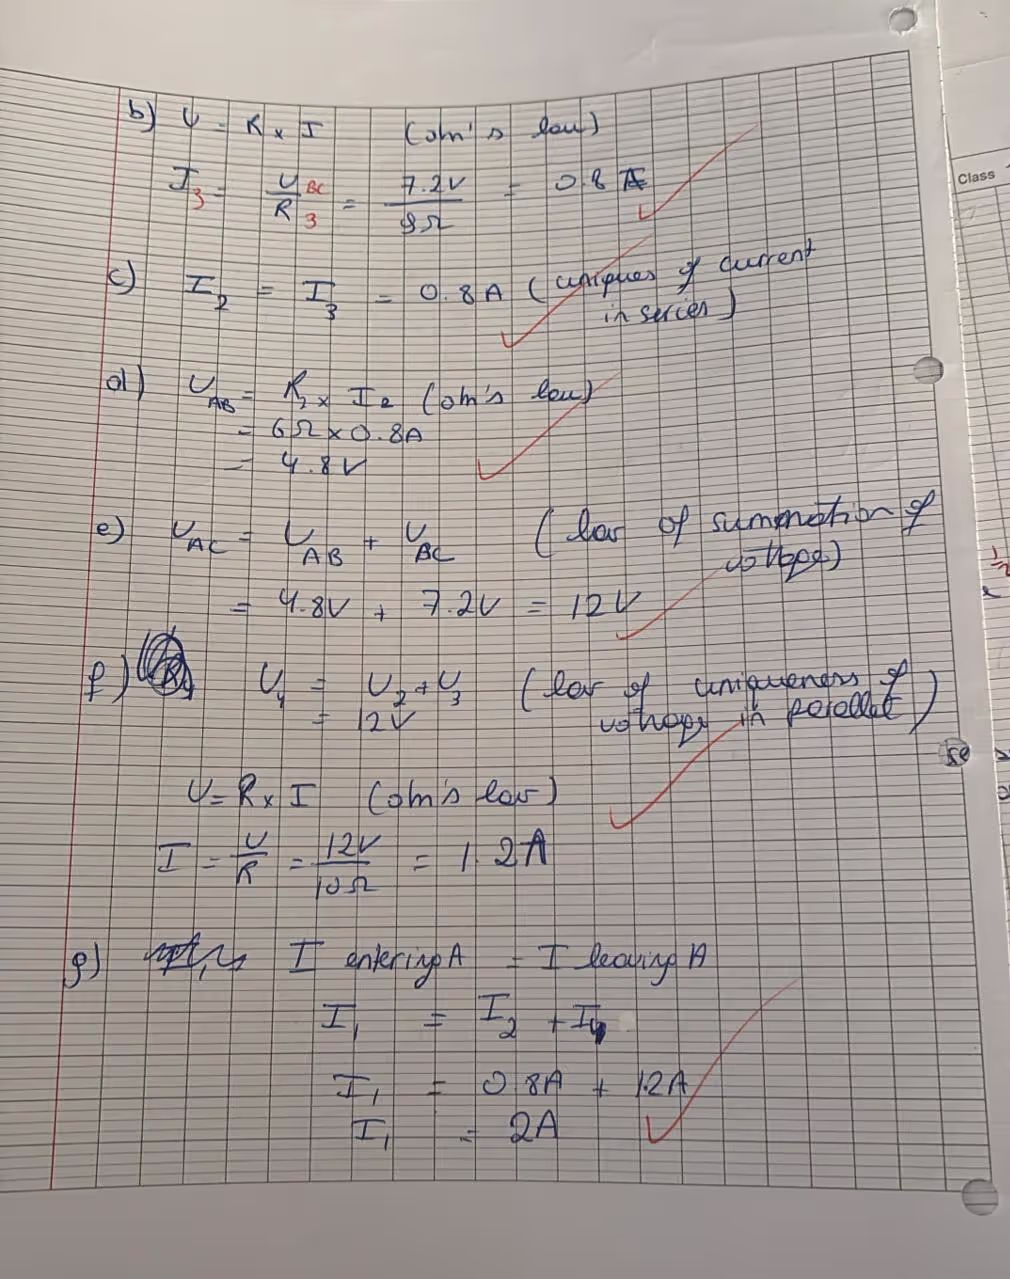 Class
b) U = R × I (ohm's law)
I₃ = U BC / R 3 = 7.2V / 9Ω = 0.8 A
c) I₂ = I₃ = 0.8 A (uniques of current
in series)
d) U_AB = R₂ × I₂ (ohm's law)
= 6Ω × 0.8A
= 4.8V
e) U_AC = U_AB + U_BC (law of summation of
voltage)
= 4.8V + 7.2V = 12V
f) U₄ = U₂ + U₃ (law of uniqueness of
= 12V voltage in parallel)
U = R × I (ohm's law)
I = U/R = 12V / 10Ω = 1.2A
g) I entering A = I leaving A
I₁ = I₂ + I₄
I₁ = 0.8A + 1.2A
I₁ = 2A